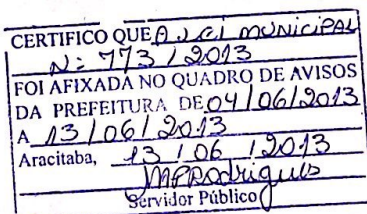 CERTIFICO QUE A LEI MUNICIPAL
Nº 773 / 2013
FOI AFIXADA NO QUADRO DE AVISOS
DA PREFEITURA DE 04/06/2013
A 13/06/2013
Aracitaba, 13 / 06 / 2013
MPRodrigues
Servidor Público